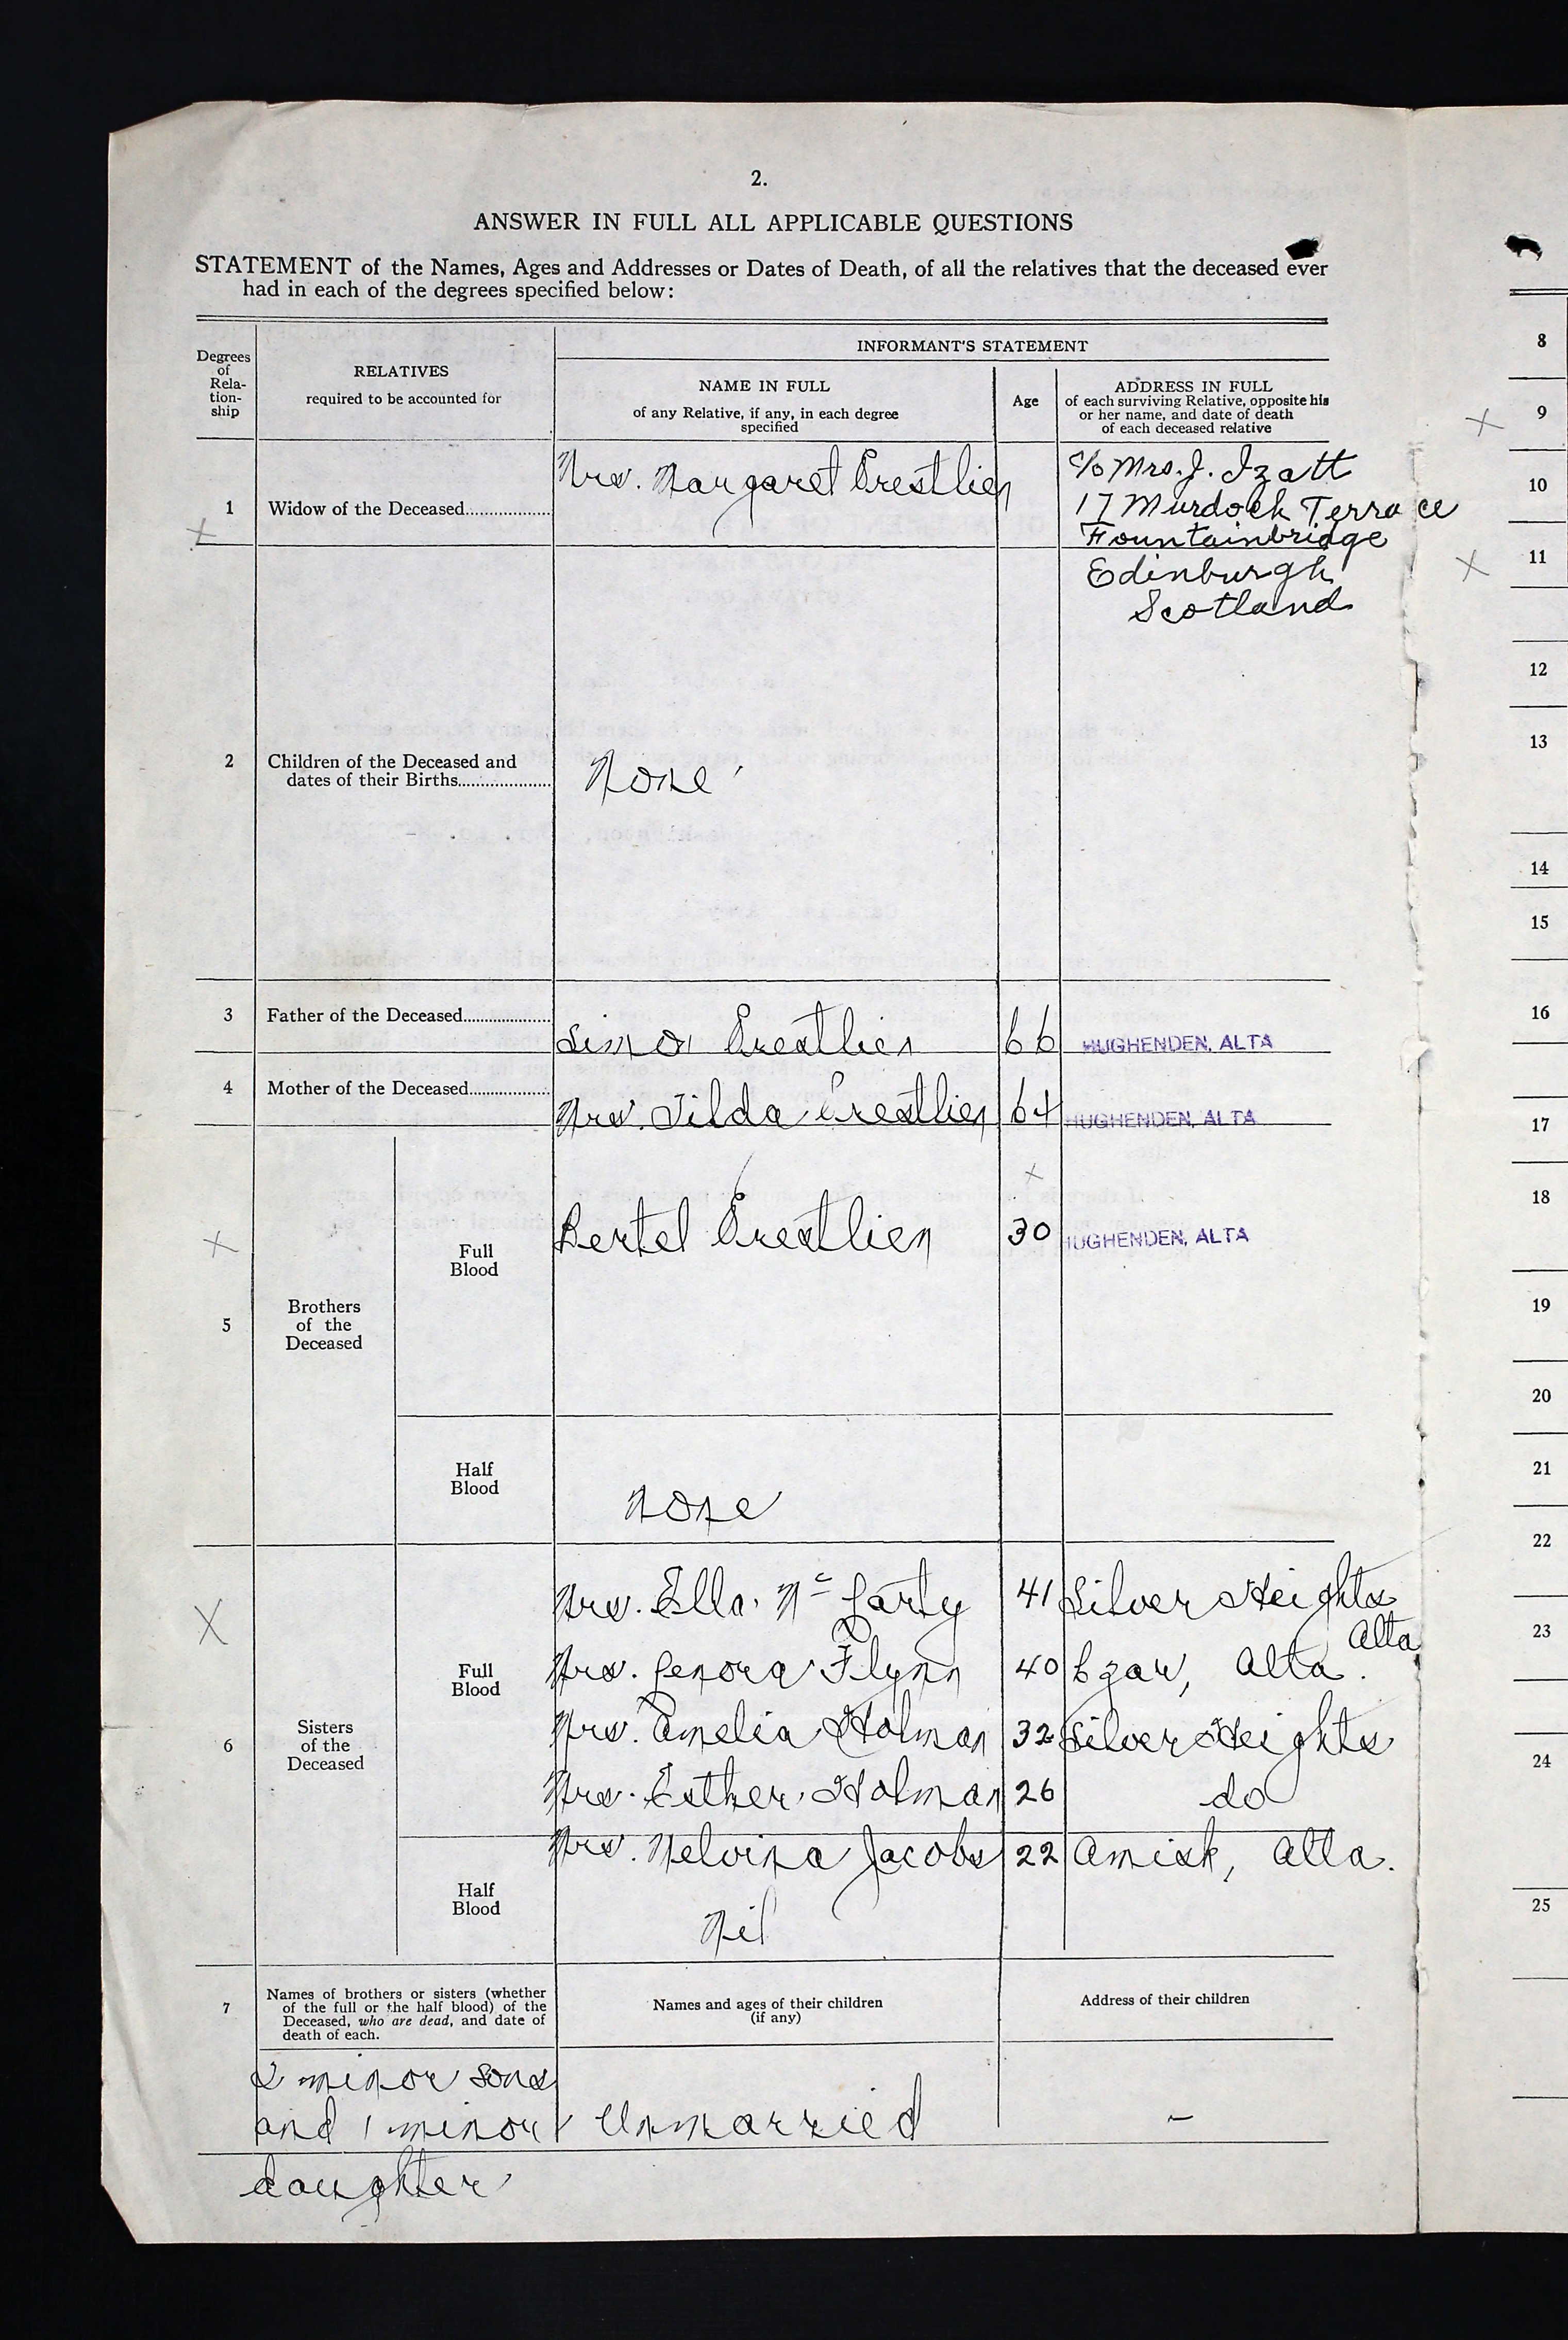 2.
ANSWER IN FULL ALL APPLICABLE QUESTIONS
STATEMENT of the Names, Ages and Addresses or Dates of Death, of all the relatives that the deceased ever
had in each of the degrees specified below:
Degrees of Rela- tion- ship
RELATIVES
required to be accounted for
INFORMANT'S STATEMENT
NAME IN FULL
of any Relative, if any, in each degree
specified
Age
ADDRESS IN FULL
of each surviving Relative, opposite his
or her name, and date of death
of each deceased relative
1 Widow of the Deceased
Mrs. Margaret Brestlien
c/o Mrs. J. Izatt
17 Murdock Terrace
Fountainbridge
Edinburgh
Scotland
2 Children of the Deceased and
dates of their Births
None
3 Father of the Deceased
Simon 66 HUGHENDEN, ALTA
4 Mother of the Deceased
Mrs. Tilda 64 HUGHENDEN, ALTA
5 Brothers
of the
Deceased
Full
Blood
Bertel 30 HUGHENDEN, ALTA
Half
Blood
none
6 Sisters
of the
Deceased
Full
Blood
Mrs. Ella Mc Carty 41 Silver Heights
Alta
Mrs. Genora Flynn 40 Czar, Alta.
Mrs. Emelia Holman 32 Silver Heights
Mrs. Esther Holman 26 do
Mrs. Melvina Jacobs 22 Amisk, Alta.
Half
Blood
Nil
7 Names of brothers or sisters (whether
of the full or the half blood) of the
Deceased, who are dead, and date of
death of each.
Names and ages of their children
(if any)
Address of their children
2 minor sons
and 1 minor Unmarried -
daughter
8
9
10
11
12
13
14
15
16
17
18
19
20
21
22
23
24
25